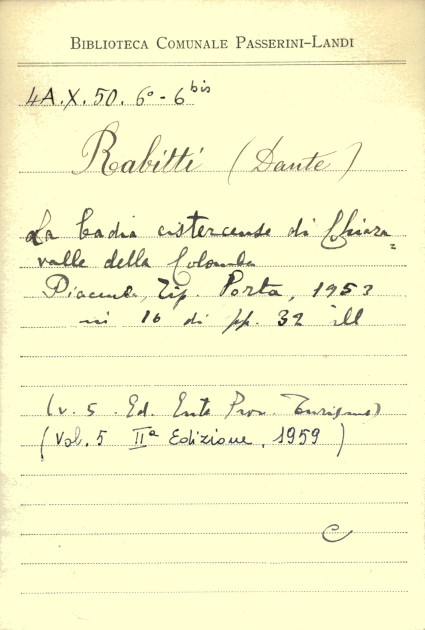 BIBLIOTECA COMUNALE PASSERINI-LANDI
4A.X.50.6º-6bis
Rabitti (Dante)
La badia cistercense di Chiara=
valle della Colomba
Piacenza, Tip. Porta, 1953
in 16 di pp. 32 ill
(v. 5. Ed. Ente Prov. Turismo)
(Vol. 5 IIª Edizione, 1959)
C